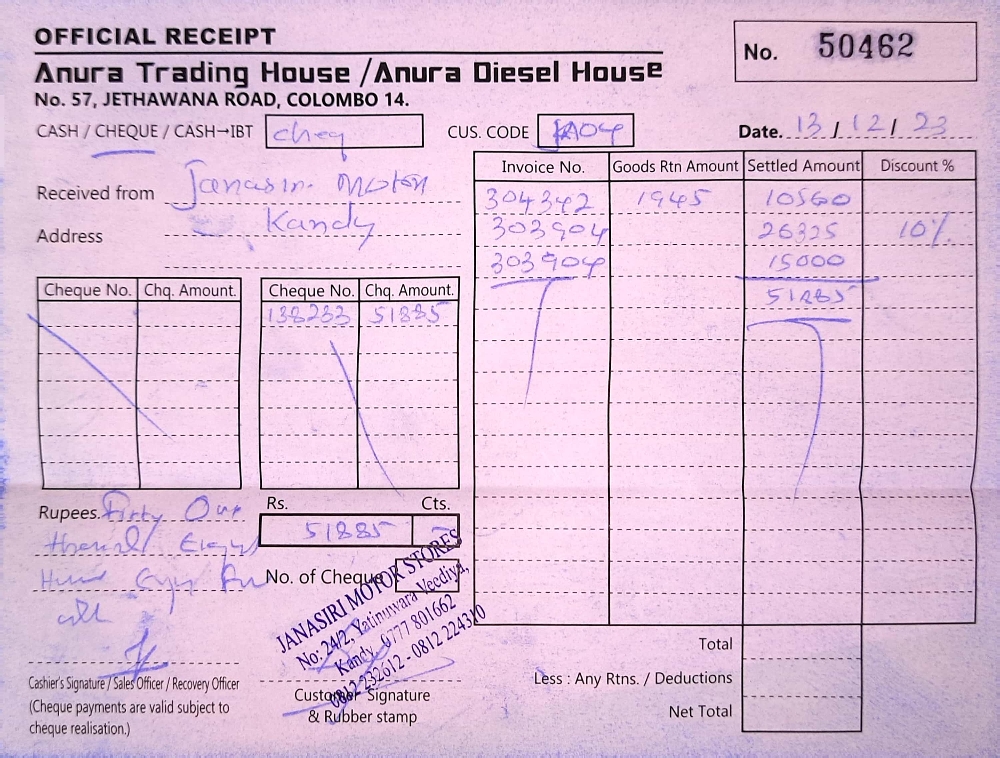 OFFICIAL RECEIPT
Anura Trading House / Anura Diesel House
No. 57, JETHAWANA ROAD, COLOMBO 14.
No. 50462
CASH / CHEQUE / CASH→IBT cheq
CUS. CODE JA04
Date. 13 / 12 / 23
Received from Janasiri Motor
Address Kandy
Invoice No. Goods Rtn Amount Settled Amount Discount %
304342 1945 10560
303904 26325 10%
303904 15000
51885
Cheque No. Chq. Amount. Cheque No. Chq. Amount.
138233 51885
Rupees. Fifty One
Rs. Cts.
51885
No. of Cheque
JANASIRI MOTOR STORES
No: 24/2, Yatinuwara Veediya,
Kandy. 0777 801662
0812 232612 - 0812 224310
Cashier's Signature / Sales Officer / Recovery Officer
(Cheque payments are valid subject to
cheque realisation.)
Customer Signature
& Rubber stamp
Total
Less : Any Rtns. / Deductions
Net Total